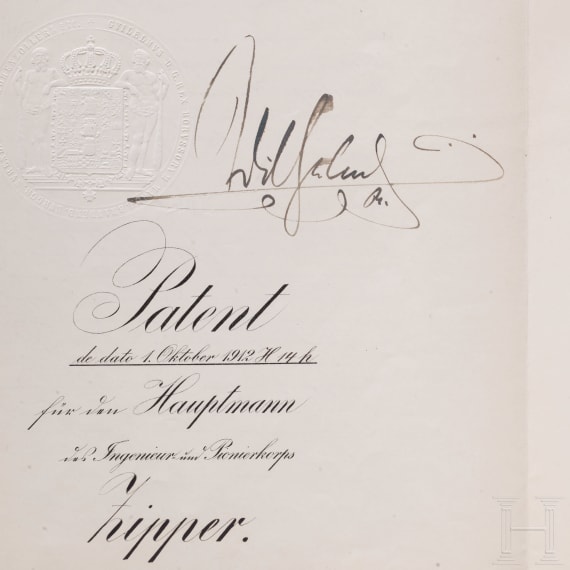 Wilhelm
R.
Patent
de dato 1. Oktober 1912 H 14 h
für den Hauptmann
des Ingenieur und Pionierkorps
Zipper.
H